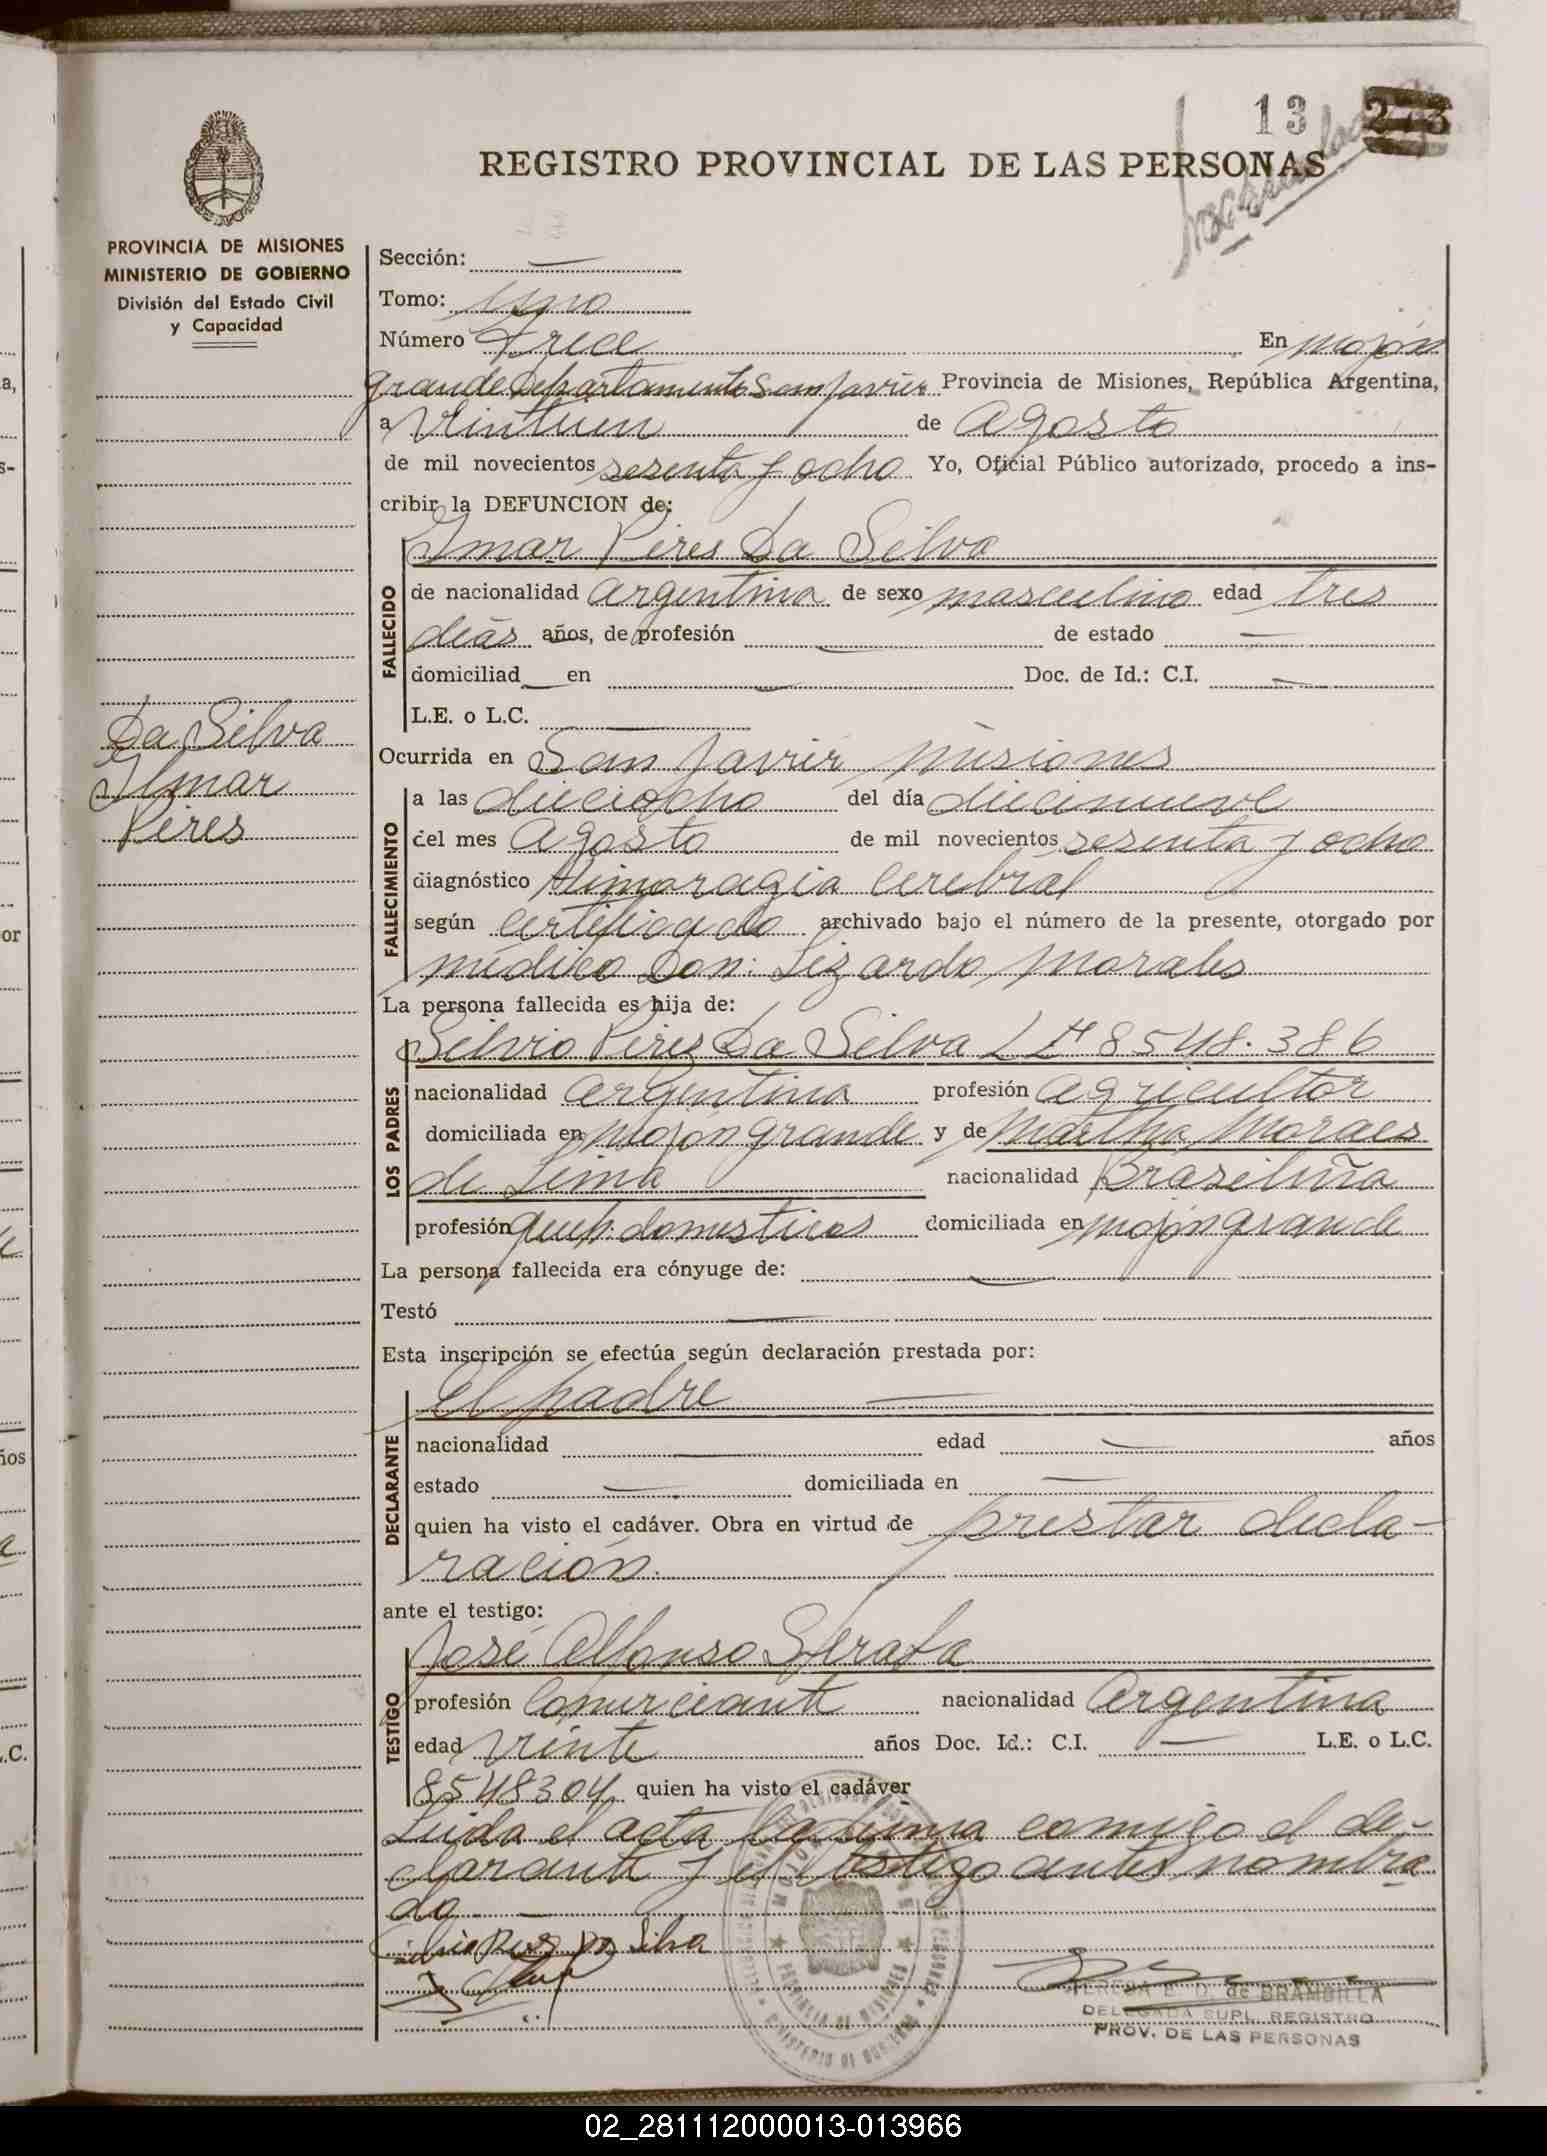 13 273
REGISTRO PROVINCIAL DE LAS PERSONAS
PROVINCIA DE MISIONES
MINISTERIO DE GOBIERNO
División del Estado Civil
y Capacidad
Da Silva
Ilmar
Pires
Sección: —
Tomo:
Número Trece En mojón
grande Departamento San Javier Provincia de Misiones, República Argentina,
a Vintiun de Agosto
de mil novecientos sesenta y ocho Yo, Oficial Público autorizado, procedo a ins-
cribir la DEFUNCION de:
Pires Da Silva
FALLECIDO
de nacionalidad argentina de sexo masculino edad tres
diás años, de profesión — de estado —
domiciliad — en — Doc. de Id.: C.I. —
L.E. o L.C. —
Ocurrida en San Javier Misiones
FALLECIMIENTO
a las dieciocho del día diecinueve
del mes Agosto de mil novecientos sesenta y ocho
diagnóstico Himoragia Cerebral
según certificado archivado bajo el número de la presente, otorgado por
médico Don: Lizardo Morales
La persona fallecida es hija de:
LOS PADRES
Silvio Pires Da Silva L E 8548.386
nacionalidad argentina profesión agricultor
domiciliada en mojon grande y de Martha Moraes
de Lima nacionalidad Brasileña
profesión queh. domesticos domiciliada en mojón grande
La persona fallecida era cónyuge de: —
Testó —
Esta inscripción se efectúa según declaración prestada por:
DECLARANTE
El padre —
nacionalidad — edad — años
estado — domiciliada en —
quien ha visto el cadáver. Obra en virtud de prestar decla-
ración.
ante el testigo:
TESTIGO
José Alfonso
profesión Comerciante nacionalidad Argentina
edad Veinte años Doc. Id.: C.I. — L.E. o L.C.
8548304 quien ha visto el cadáver
Leida el acta la firma comigo el de-
clarante y el testigo antes nombra
do —
Silvio Pires Da Silva
TERESA E. D. de BRAMBILLA
DELEGADA SUPL. REGISTRO
PROV. DE LAS PERSONAS
PROVINCIA DE MISIONES
02_281112000013-013966